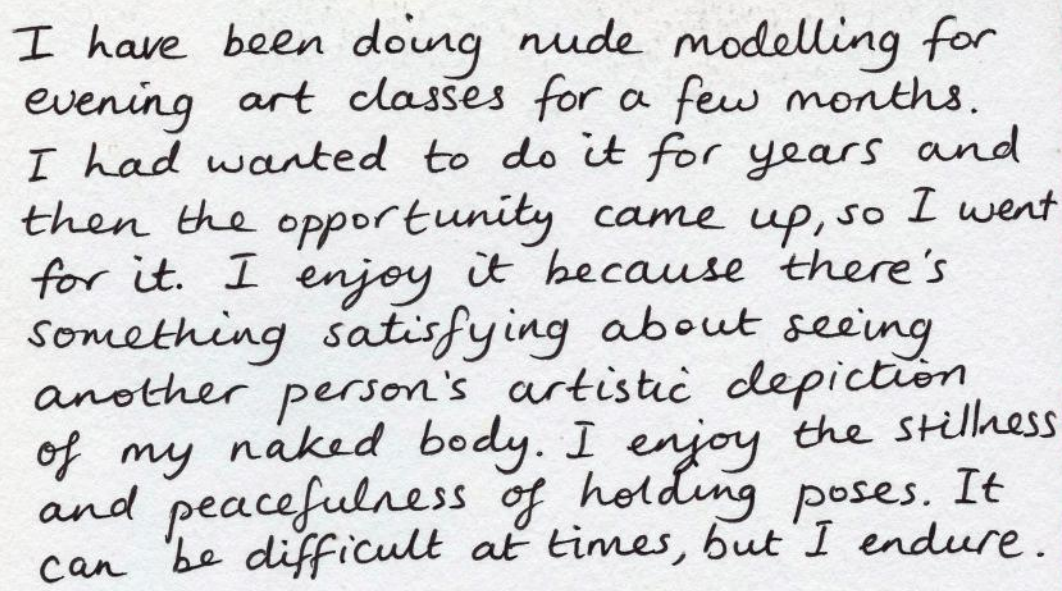 I have been doing nude modelling for
evening art classes for a few months.
I had wanted to do it for years and
then the opportunity came up, so I went
for it. I enjoy it because there's
something satisfying about seeing
another person's artistic depiction
of my naked body. I enjoy the stillness
and peacefulness of holding poses. It
can be difficult at times, but I endure.